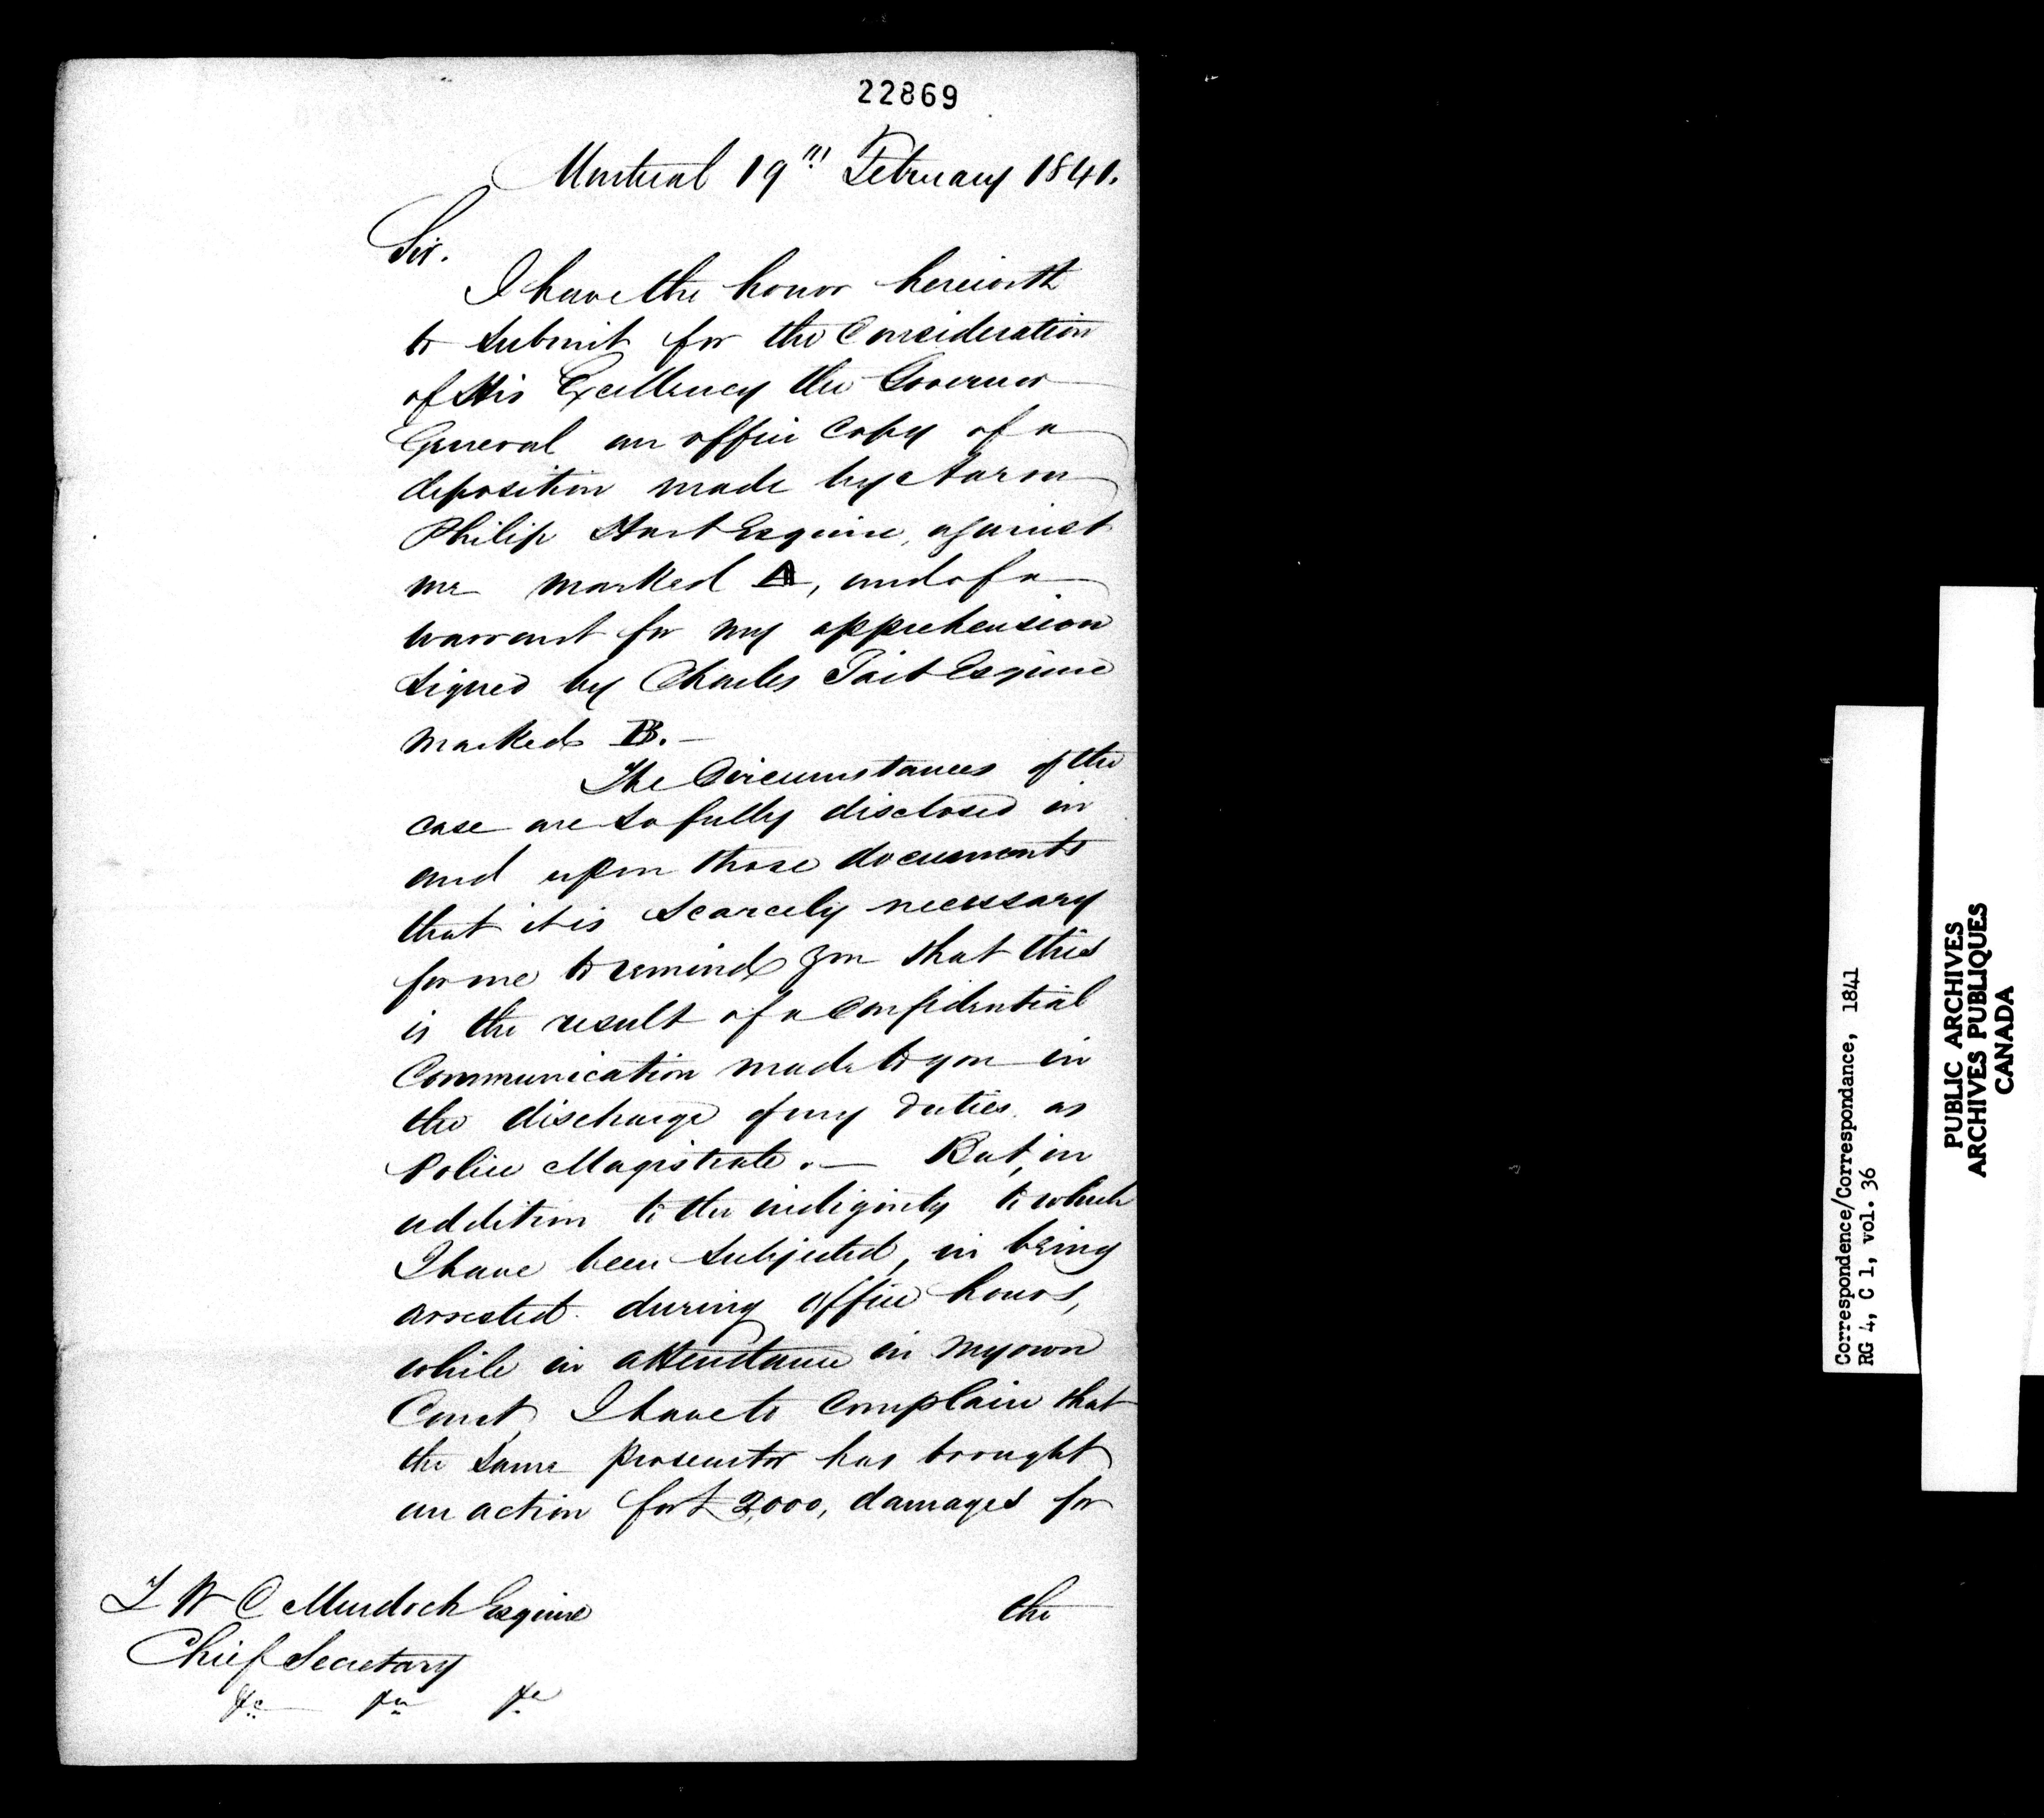 22869
Montreal 19th February 1841.
Sir.
I have the honor herewith
to submit for the Consideration
of His Excellency the Governor
General an office Copy of a
deposition made by Aaron
Philip Hart Esquire, against
me marked A, and of a
warrant for my apprehension
signed by Charles Tait Esquire
marked B. —
The Circumstances of the
case are so fully disclosed in
and upon those documents
that it is scarcely necessary
for me to remind you that this
is the result of a Confidential
Communication made to you in
the discharge of my duties as
Police Magistrate. — But, in
addition to the indignity to which
I have been subjected, in being
arrested during office hours,
while in attendance in my own
Court, I have to complain that
the same prosecutor has brought
an action for £2,000, damages for
the
T W C Murdoch Esquire
Chief Secretary
&c &c &c
Correspondence/Correspondance, 1841
RG 4, C 1, vol. 36
PUBLIC ARCHIVES
ARCHIVES PUBLIQUES
CANADA